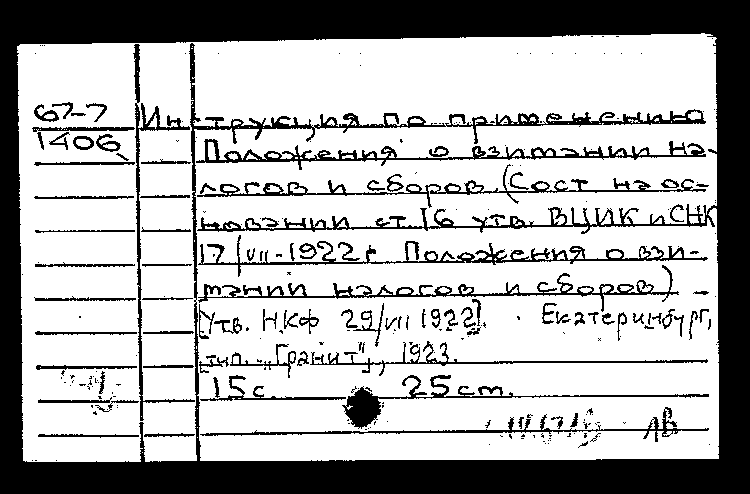 67-7 Инструкция по применению
1406 Положения о взимании на-
логов и сборов. (Сост на ос-
новании ст. 16 утв. ВЦИК и СНК
17/VII-1922 г. Положения о взи-
мании налогов и сборов) –
[Утв. НКФ 29/VII 1922]. Екатеринбург,
тип. "Гранит", 1923.
15 с. 25 см.
ЛВ